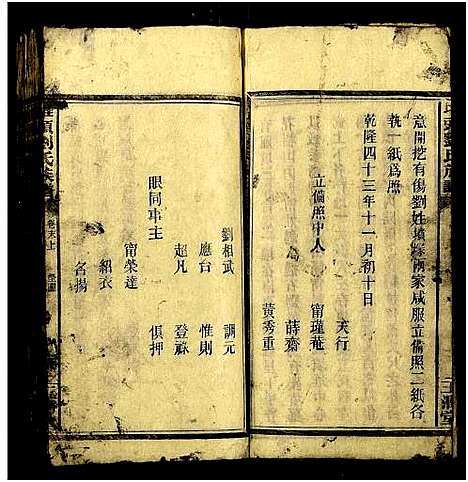 劉氏族譜
意開挖有傷劉姓墳塚兩家咸服立備照二紙各
執一紙爲照
乾隆四十三年十一月初十日
天行
立備照中人 甯瑾菴
薛齋
黃秀重
劉相武 調元
應台 惟則
眼同事主 超凡 登
甯榮達 俱押
紹衣
名揚
頭劉氏族
卷末上